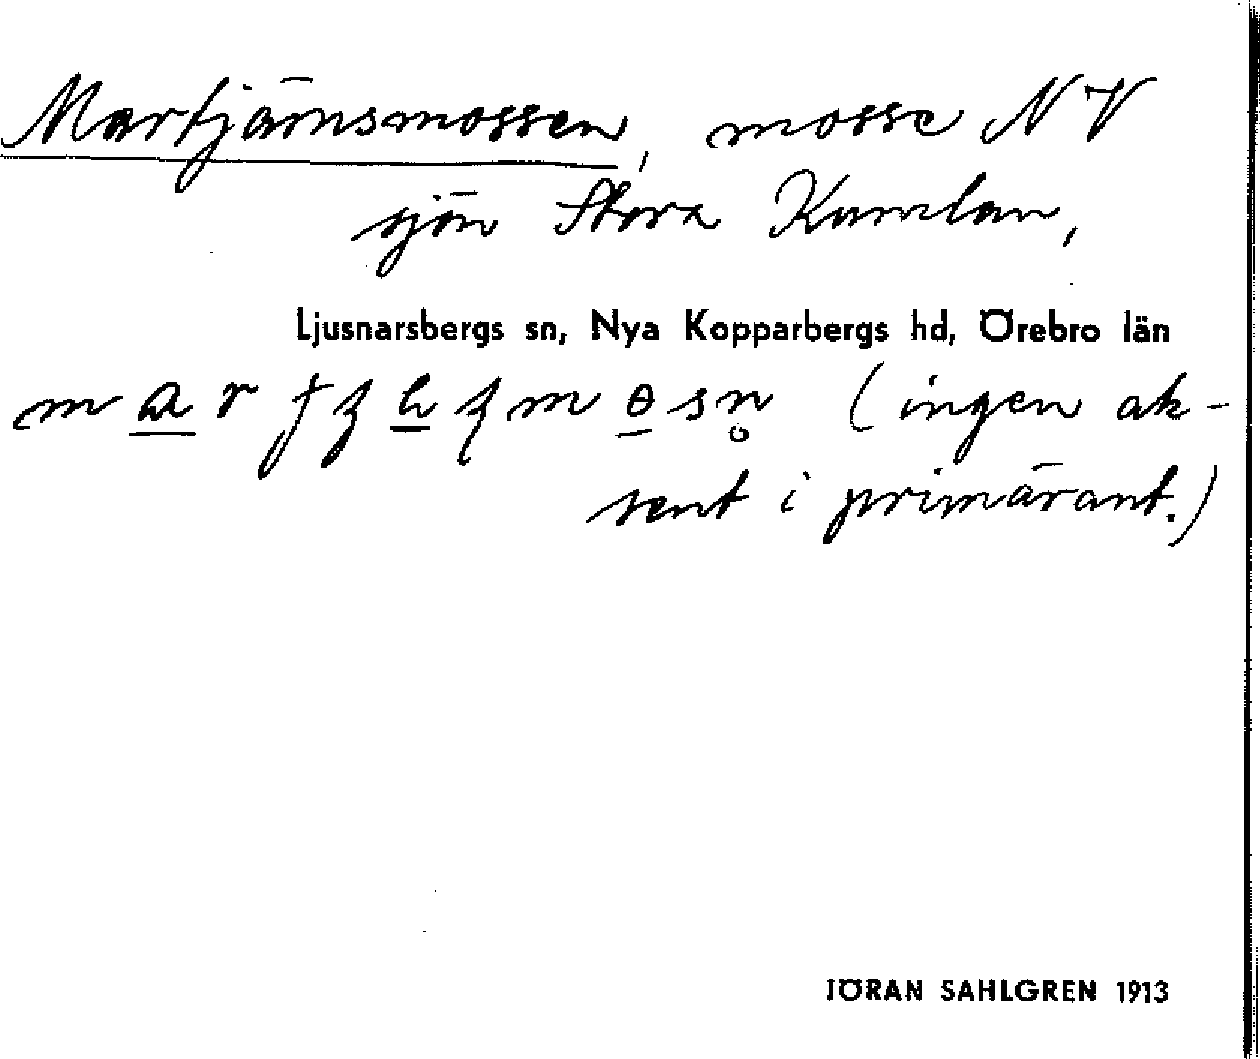 Martjärnsmossen, mosse NV
sjön Stora Kumlan,
Ljusnarsbergs sn, Nya Kopparbergs hd, Örebro län
(ingen ak-
sent i primärant.)
JÖRAN SAHLGREN 1913